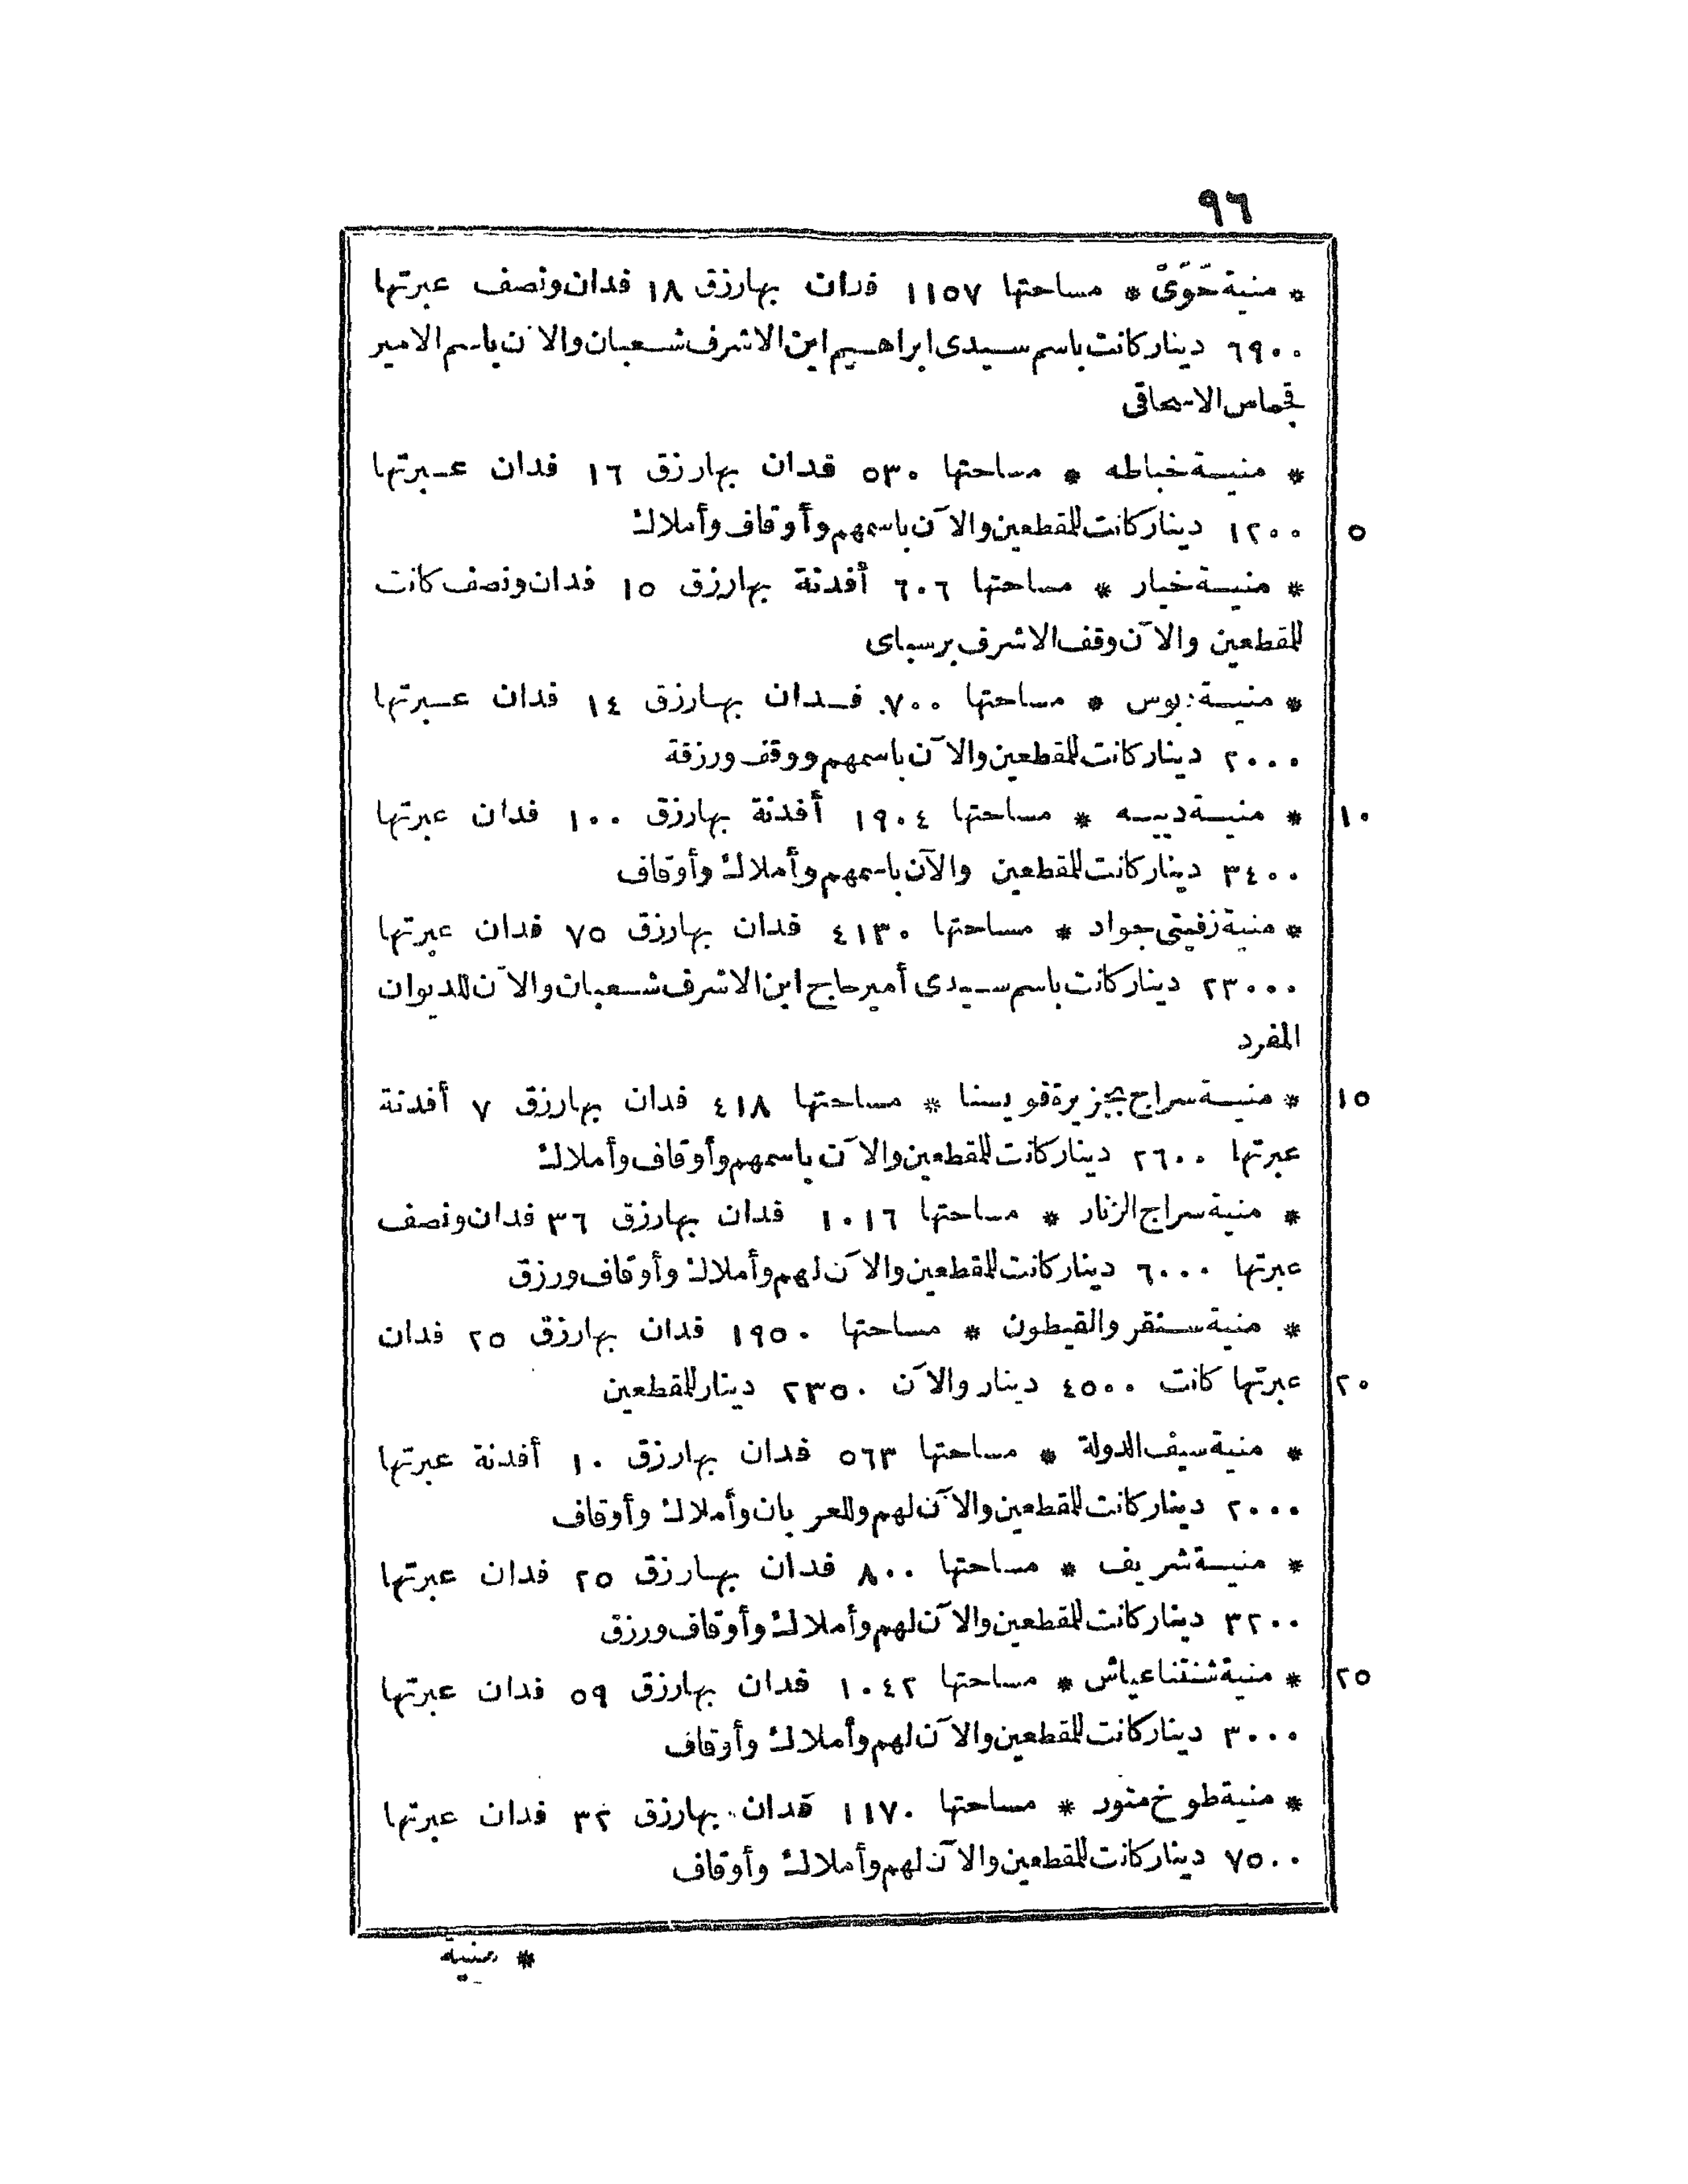 ٩٦
* منية حَوَىْ * مساحتها ١١٥٧ فدان بها رزق ١٨ فدان ونصف عبرتها
٦٩٠٠ دينار كانت باسم سيدى ابراهيم ابن الاشرف شعبان والآن باسم الامير
قجماس الاسحاقى
* منية خباطه * مساحتها ٥٣٠ فدان بها رزق ١٦ فدان عبرتها
٥ ١٢٠٠ دينار كانت للمقطعين والآن باسمهم وأوقاف وأملاك
* منية خيار * مساحتها ٦٠٦ أفدنة بها رزق ١٥ فدان ونصف كانت
للمقطعين والآن وقف الاشرف برسباى
* منية بوس * مساحتها ٧٠٠ فدان بها رزق ١٤ فدان عبرتها
٢٠٠٠ دينار كانت للمقطعين والآن باسمهم ووقف ورزقة
١٠ * منية ديبه * مساحتها ١٩٠٤ أفدنة بها رزق ١٠٠ فدان عبرتها
٣٤٠٠ دينار كانت للمقطعين والآن باسمهم وأملاك وأوقاف
* منية زفيتى جواد * مساحتها ٤١٣٠ فدان بها رزق ٧٥ فدان عبرتها
٢٣٠٠٠ دينار كانت باسم سيدى أمير حاج ابن الاشرف شعبان والآن للديوان
المفرد
١٥ * منية سراج بجزيرة قويسنا * مساحتها ٤١٨ فدان بها رزق ٧ أفدنة
عبرتها ٢٦٠٠ دينار كانت للمقطعين والآن باسمهم وأوقاف وأملاك
* منية سراج الزنار * مساحتها ١٠١٦ فدان بها رزق ٣٦ فدان ونصف
عبرتها ٦٠٠٠ دينار كانت للمقطعين والآن لهم وأملاك وأوقاف ورزق
* منية سنقر والقيطون * مساحتها ١٩٥٠ فدان بها رزق ٢٥ فدان
٢٠ عبرتها كانت ٤٥٠٠ دينار والآن ٢٣٥٠ دينار للمقطعين
* منية سيف الدولة * مساحتها ٥٦٣ فدان بها رزق ١٠ أفدنة عبرتها
٢٠٠٠ دينار كانت للمقطعين والآن لهم وللعربان وأملاك وأوقاف
* منية شريف * مساحتها ٨٠٠ فدان بها رزق ٢٥ فدان عبرتها
٣٢٠٠ دينار كانت للمقطعين والآن لهم وأملاك وأوقاف ورزق
٢٥ * منية شنتنا عياش * مساحتها ١٠٤٢ فدان بها رزق ٥٩ فدان عبرتها
٣٠٠٠ دينار كانت للمقطعين والآن لهم وأملاك وأوقاف
* منية طوخ متور * مساحتها ١١٧٠ فدان بها رزق ٣٢ فدان عبرتها
٧٥٠٠ دينار كانت للمقطعين والآن لهم وأملاك وأوقاف
* منية